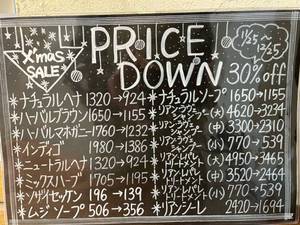 X'mas
SALE
PRICE
DOWN
11/25~
12/25
30% off
*ナチュラルヘナ 1320→924
*ハーバルブラウン 1650→1155
*ハーバルマホガニー 1760→1232
*インディゴ 1980→1386
*ニュートラルヘナ 1320→924
*ミックスハーブ 1705→1195
*ソザイセッケン 196→139
*ムジソープ 506→356
*ナチュラルソープ 1650→1155
*リアンラヴ シャンプー (大) 4620→3234
*リアンラヴ シャンプー (中) 3300→2310
*リアンラヴ シャンプー (小) 770→539
*リアンレパレ トリートメント (大) 4950→3465
*リアンレパレ トリートメント (中) 3520→2464
*リアンレパレ トリートメント (小) 770→539
*リアンシーレ 2420→1694